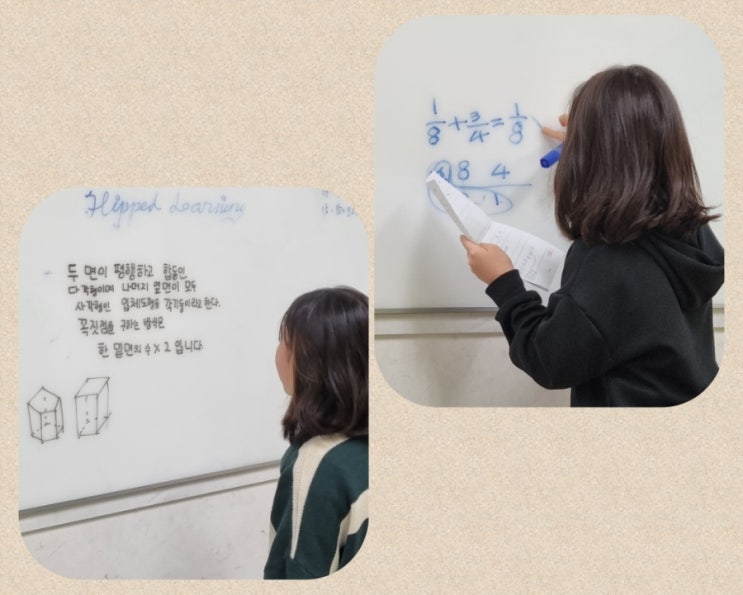 Flipped Learning
두 면이 평행하고 합동인
다각형이며 나머지 옆면이 모두
사각형인 입체도형을 각기둥이라고 한다.
꼭짓점을 구하는 방법은
한 밑면의 수 X 2 입니다.
1/8 + 3/4 = 1/8
4) 8 4